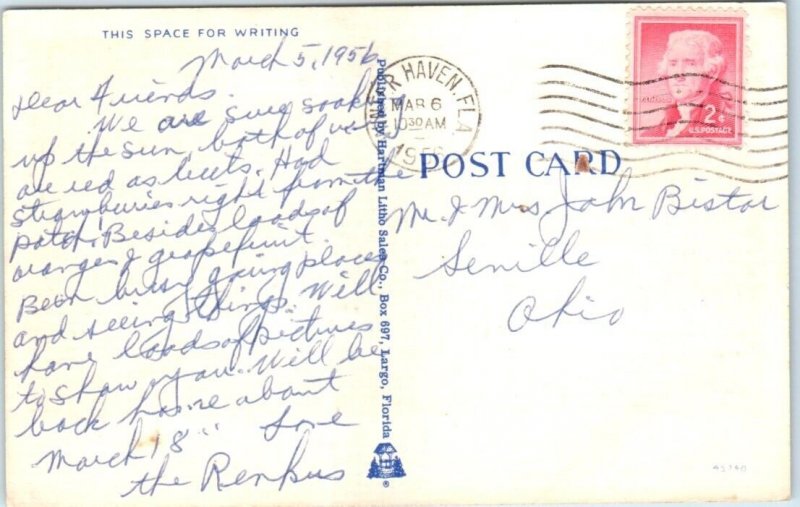 THIS SPACE FOR WRITING
March 5, 1956
Dear Friends.
We are sure soaking
up the sun both of us
are red as beets. Had
strawburies right from the
patch. Besides loads of
oranges & grapefruit.
Been busy going places
and seeing things. Will
have loads of pictures
to show you. Will be
back home about
March 18" Love
the Renkus
Published by Hartman Litho Sales Co., Box 697, Largo, Florida
®
TER HAVEN, FLA
MAR 6
10 30 AM
1956
2¢
U.S. POSTAGE
POST CARD
Mr. & Mrs John Bistar
Seville
Ohio